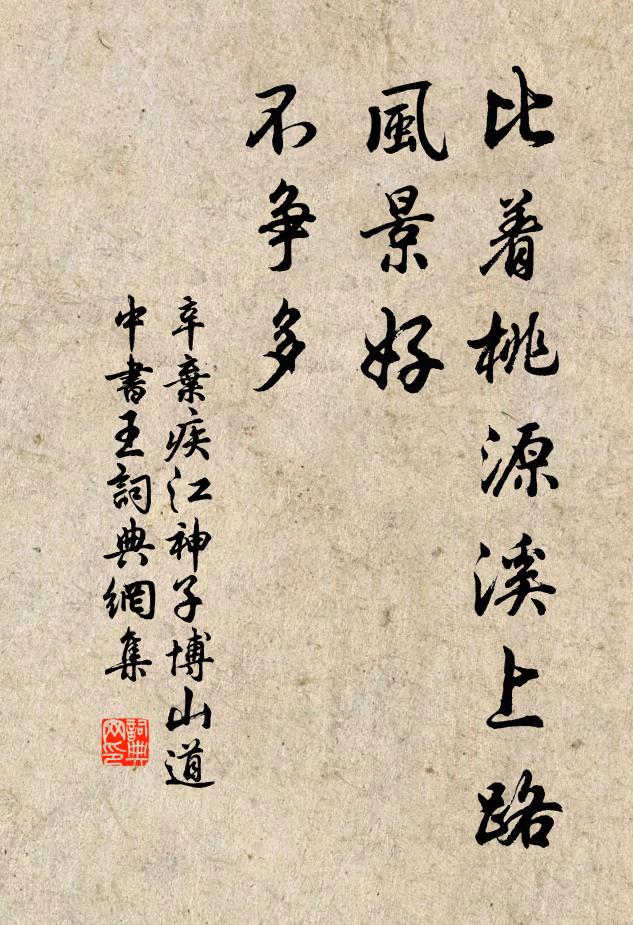 比着桃源溪上路
風景好
不争多
辛棄疾江神子博山道
中書王詞典網集
詞典
网印